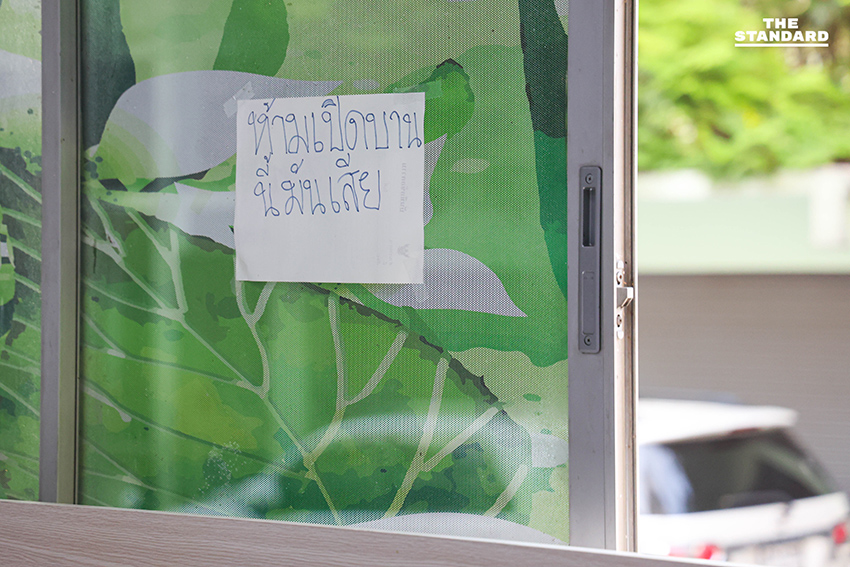 THE
STANDARD
ห้ามเปิดบาน
นี้มันเสีย